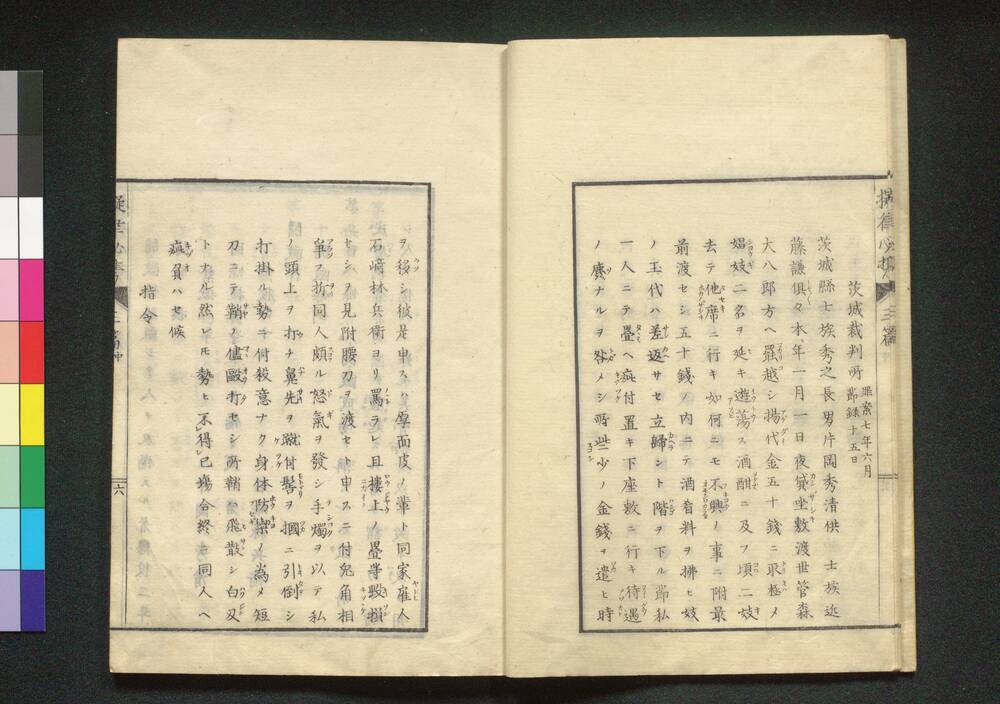 茨城裁判所 罪案七年六月
節録十五日
茨城縣士族秀之長男片岡秀清供 士族近
藤謙倶々本年一月一日夜貸座敷渡世管森
大八郎方ヘ罷越シ揚代金五十銭ニ取極メ
娼妓二名ヲ延キ遊蕩ス酒酣ニ及フ頃二妓
去テ他席ニ行キ如何ニモ不興ノ事ニ附最
前渡セシ五十銭ノ内ニテ酒肴料ヲ拂ヒ妓
ノ玉代ハ差返サセ立歸ラント階ヲ下ル節私
一人ニテ畳ヘ疵付置キ下座敷ニ行キ待遇
ノ麁ナルヲ咎メシ所些少ノ金錢ヲ遣ヒ時
ヲ移シ彼是申ス ハ厚面皮ノ輩ト同家雇人
石嶋林兵衛ヨリ罵ラレ且樓上ノ畳等毀損
セシヲ見附腰刀ヲ渡セト申スニ付兎角相
争フ折同人頗ル怒氣ヲ發シ手燭ヲ以テ私
ノ頭上ヲ打ナ鼻先ヲ蹴付髻ヲ掴ニ引倒シ
打掛ル勢ニ付殺意ナク身体防禦ノ為メ短
刀ニテ鞘ノ儘毆打セシ所鞘飛散シ白刃
トナル然レトモ勢ヒ不得已場合終ニ同人ヘ
疵負ハセ候
指令
擬律必携 三篇
六